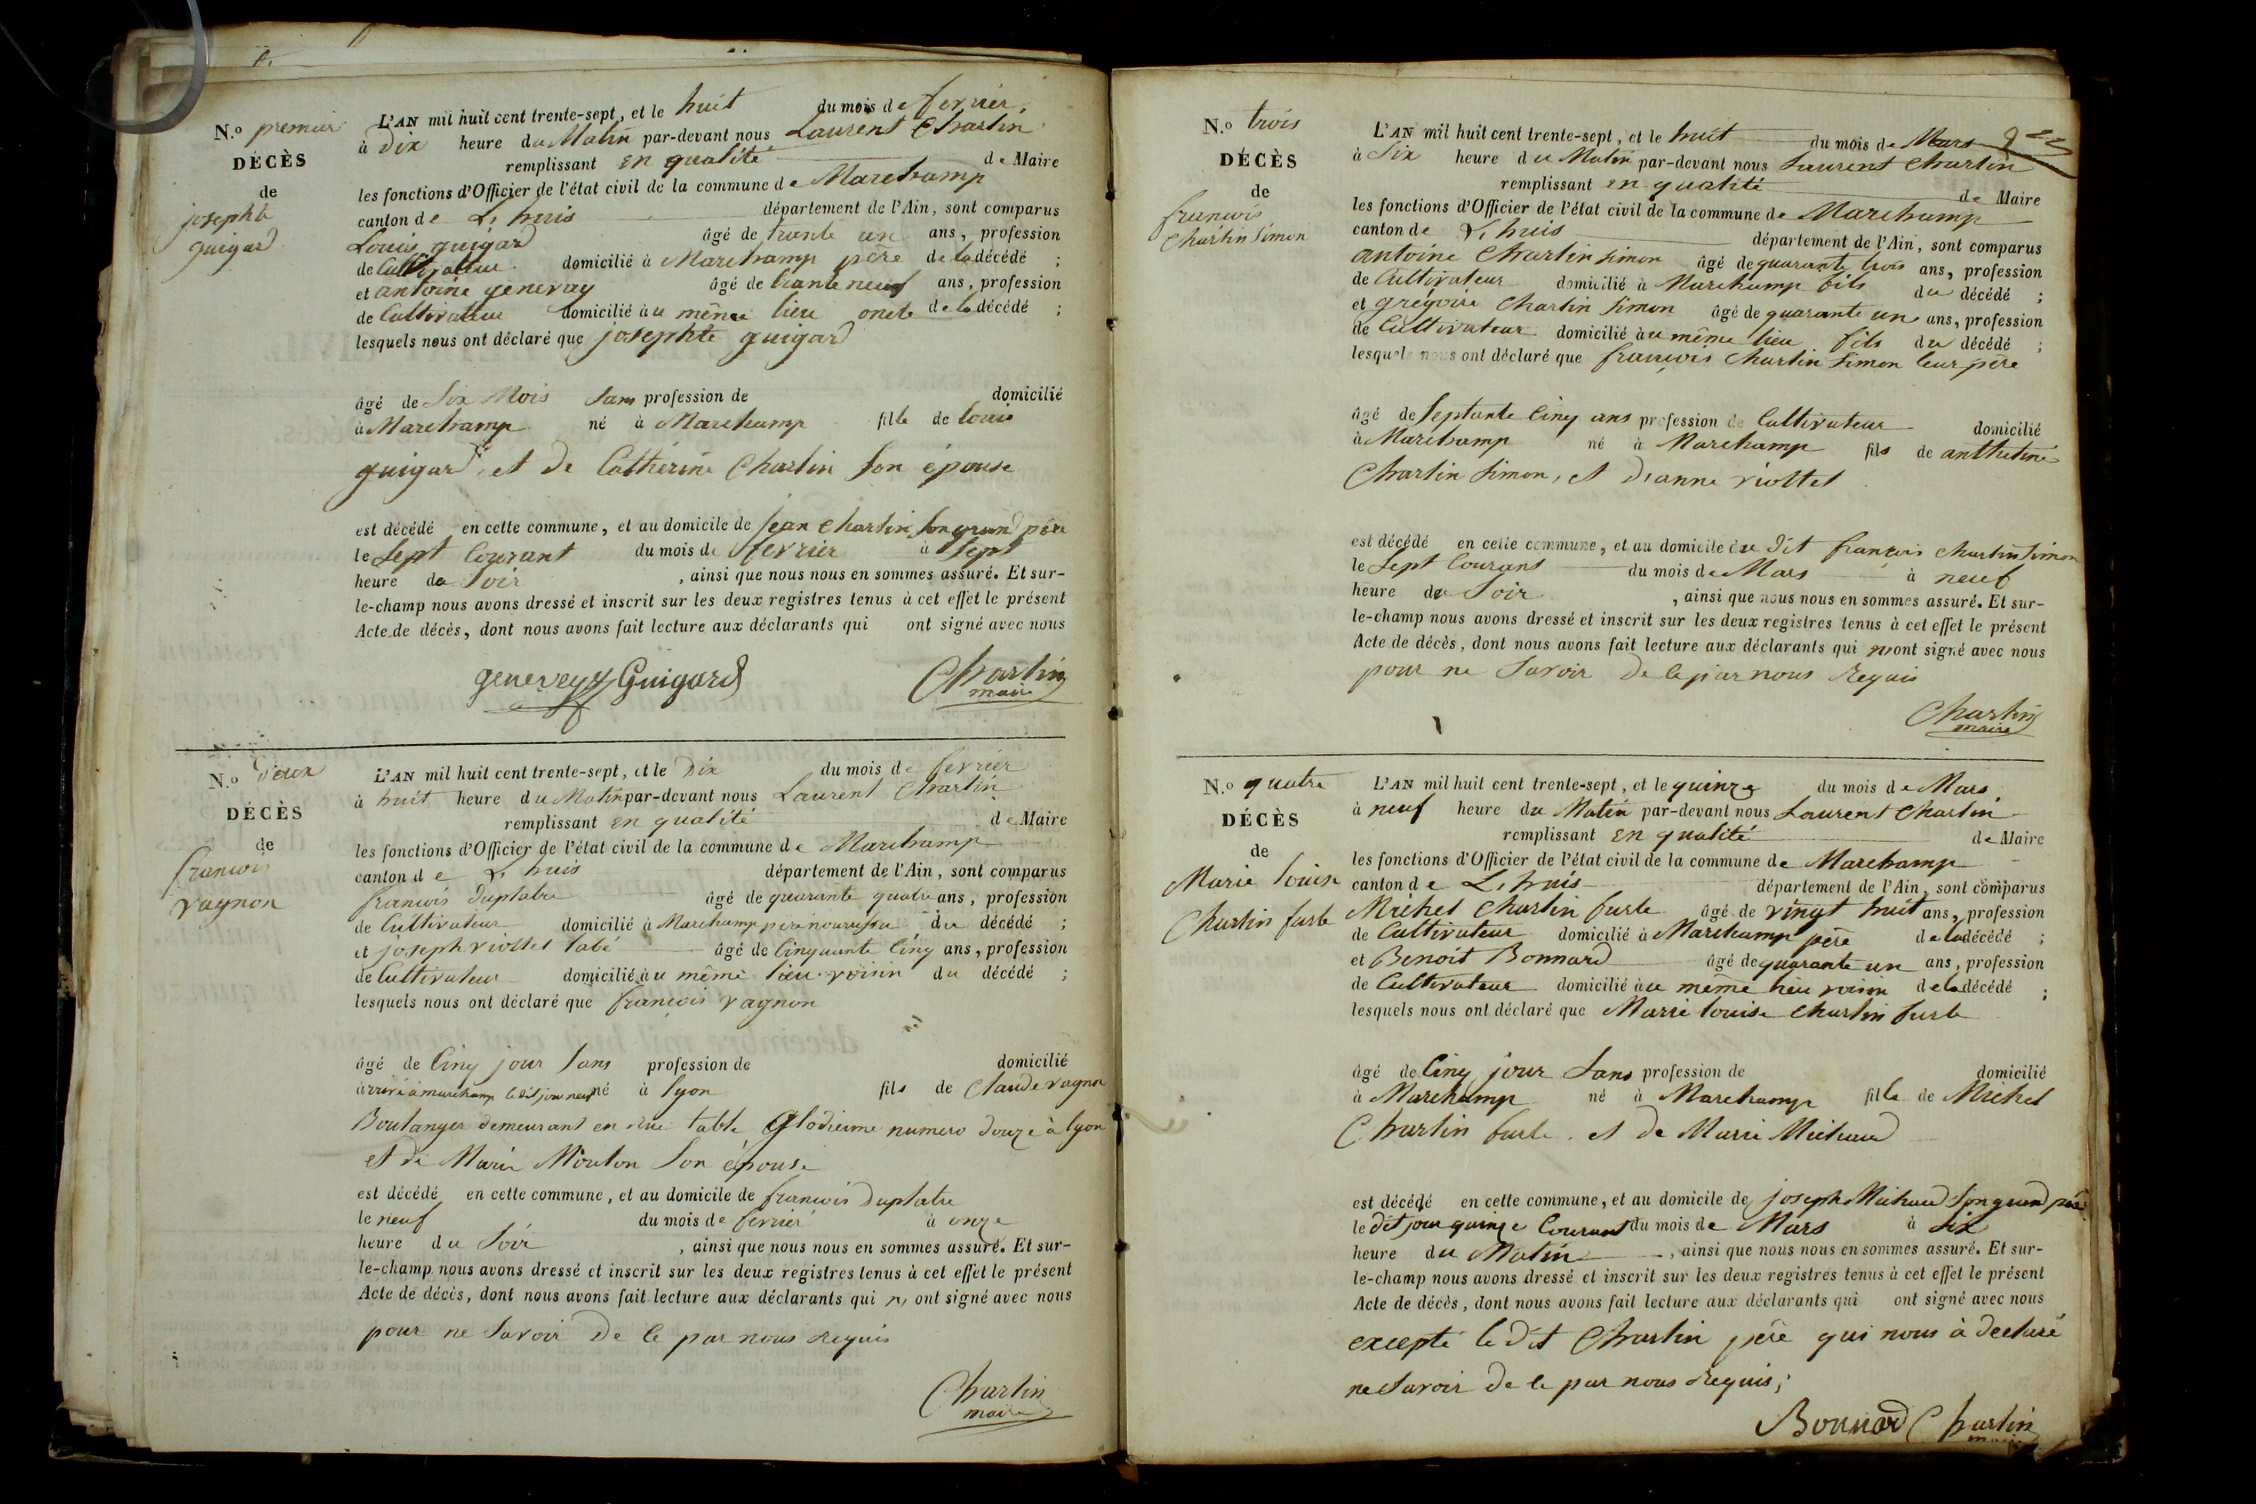 N.o premier
DÉCÈS
de
josephte
guigard
L'AN mil huit cent trente-sept, et le huit du mois de fevrier,
à Dix heure du Matin par-devant nous Laurent Charlin
remplissant en qualité de Maire
les fonctions d'Officier de l'état civil de la commune de Marchamp
canton de L, huis département de l'Ain, sont comparus
Louis guigard âgé de trante un ans, profession
de Cultivateur domicilié à Marchamp père de la décédé ;
et antoine genevay âgé de trante neuf ans, profession
de Cultivateur domicilié au même lieu oncle de la décédé ;
lesquels nous ont déclaré que josephte guigard
âgé de Six Mois Sans profession de domicilié
à Marchamp né à Marchamp fille de louis
guigard, et de Catherine Charlin Son épouse
est décédé en cette commune, et au domicile de jean Charlin Son grand père
le Sept Courant du mois de fevrier à Sept
heure du Soir , ainsi que nous nous en sommes assuré. Et sur-
le-champ nous avons dressé et inscrit sur les deux registres tenus à cet effet le présent
Acte de décès, dont nous avons fait lecture aux déclarants qui ont signé avec nous
genevey Guigard Charlin
maire
N.o Deux
DÉCÈS
de
francois
vagnon
L'AN mil huit cent trente-sept, et le Dix du mois de fevrier
à huit heure du Matin par-devant nous Laurent Charlin
remplissant en qualité de Maire
les fonctions d'Officier de l'état civil de la commune de Marchamp
canton de L, huis département de l'Ain, sont comparus
francois Duplatre âgé de quarante quatre ans, profession
de Cultivateur domicilié à Marchamp père nourissu du décédé ;
et joseph viollet labé âgé de Cinquante Cinq ans, profession
de Cultivateur domicilié au même lieu voisin du décédé ;
lesquels nous ont déclaré que françois vagnon
âgé de Cinq jour Sans profession de domicilié
arrivé à marchamp le dit jour neuf né à lyon fils de Claude vagnon
Boulanger demeurant en rue table Glodieime numero douze à lyon
et de Marie Mouton Son épouse
est décédé en cette commune, et au domicile de francois Duplatre
le neuf du mois de fevrier à onze
heure du Soir , ainsi que nous nous en sommes assuré. Et sur-
le-champ nous avons dressé et inscrit sur les deux registres tenus à cet effet le présent
Acte de décès, dont nous avons fait lecture aux déclarants qui n, ont signé avec nous
pour ne Savoir De le par nous Requis
Charlin
maire
N.o trois
DÉCÈS
de
francois
Charlin Simon
L'AN mil huit cent trente-sept, et le huit du mois de Mars
à Six heure du Matin par-devant nous Laurent Charlin
remplissant en qualité de Maire
les fonctions d'Officier de l'état civil de la commune de Marchamp
canton de L, huis département de l'Ain, sont comparus
antoine Charlin Simon âgé de quarante trois ans, profession
de Cultivateur domicilié à Marchamp fils du décédé ;
et grégoire Charlin Simon âgé de quarante un ans, profession
de Cultivateur domicilié au même lieu fils du décédé ;
lesquels nous ont déclaré que françois Charlin Simon leur père
âgé de Septante Cinq ans profession de Cultivateur domicilié
à Marchamp né à Marchamp fils de anthelme
Charlin Simon, et Dianne viollet
est décédé en cette commune, et au domicile du Dit françois Charlin Simon
le Sept Courant du mois de Mars à neuf
heure du Soir , ainsi que nous nous en sommes assuré. Et sur-
le-champ nous avons dressé et inscrit sur les deux registres tenus à cet effet le présent
Acte de décès, dont nous avons fait lecture aux déclarants qui n'ont signé avec nous
pour ne Savoir De le par nous Requis
Charlin
maire
N.o quatre
DÉCÈS
de
Marie louise
Charlin furle
L'AN mil huit cent trente-sept, et le quinze du mois de Mars
à neuf heure du Matin par-devant nous Laurent Charlin
remplissant en qualité de Maire
les fonctions d'Officier de l'état civil de la commune de Marchamp
canton de L, huis département de l'Ain, sont comparus
Michel Charlin furle âgé de vingt huit ans, profession
de Cultivateur domicilié à Marchamp père de la décédé ;
et Benoit Bonnard âgé de quarante un ans, profession
de Cultivateur domicilié au même lieu voisin de la décédé ;
lesquels nous ont déclaré que Marie louise Charlin furle
âgé de Cinq jour Sans profession de domicilié
à Marchamp né à Marchamp fille de Michel
Charlin furle, et de Marie Michaud
est décédé en cette commune, et au domicile de joseph Michaud Son grand père
le Dit jour quinze Courant du mois de Mars à Six
heure du Matin , ainsi que nous nous en sommes assuré. Et sur-
le-champ nous avons dressé et inscrit sur les deux registres tenus à cet effet le présent
Acte de décès, dont nous avons fait lecture aux déclarants qui ont signé avec nous
excepté le Dit Charlin père qui nous à Declaré
ne Savoir De le par nous Requis ;
Bonnard Charlin
maire